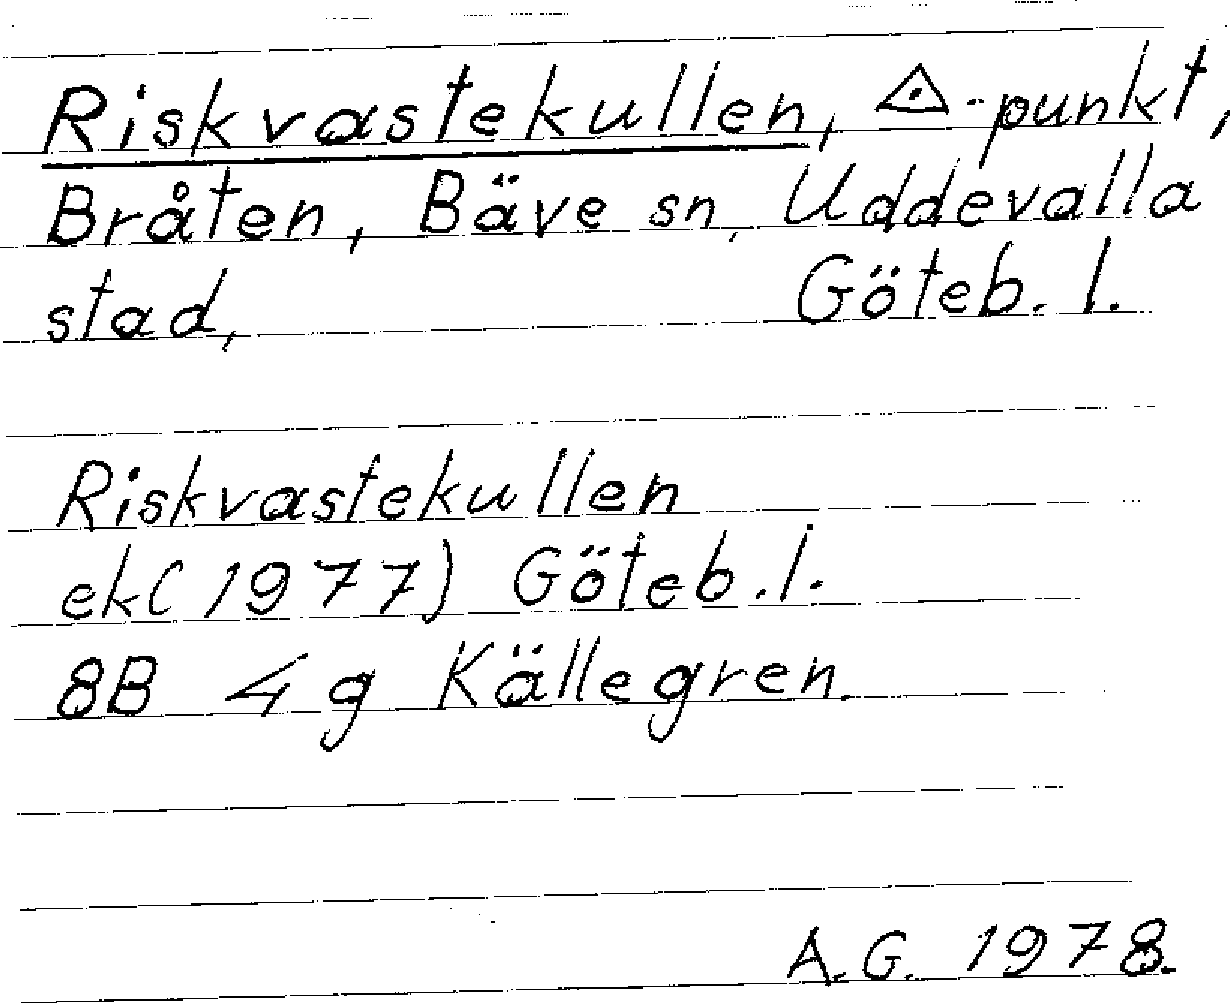 Riskvastekullen, ◬-punkt,
Bråten, Bäve sn, Uddevalla
stad, Göteb. l.
Riskvastekullen
ek(1977) Göteb.l.
8B 4g Källegren.
A.G. 1978.